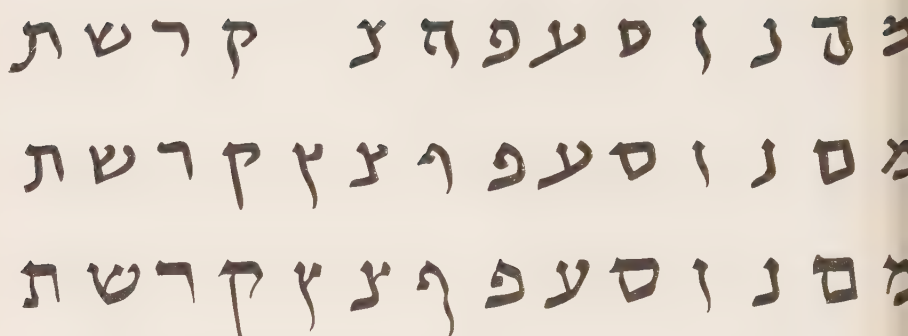 מ ם נ ן ס ע פ ף צ ק ר ש ת
מ ם נ ן ס ע פ ף צ ץ ק ר ש ת
מ ם נ ן ס ע פ ף צ ץ ק ר ש ת